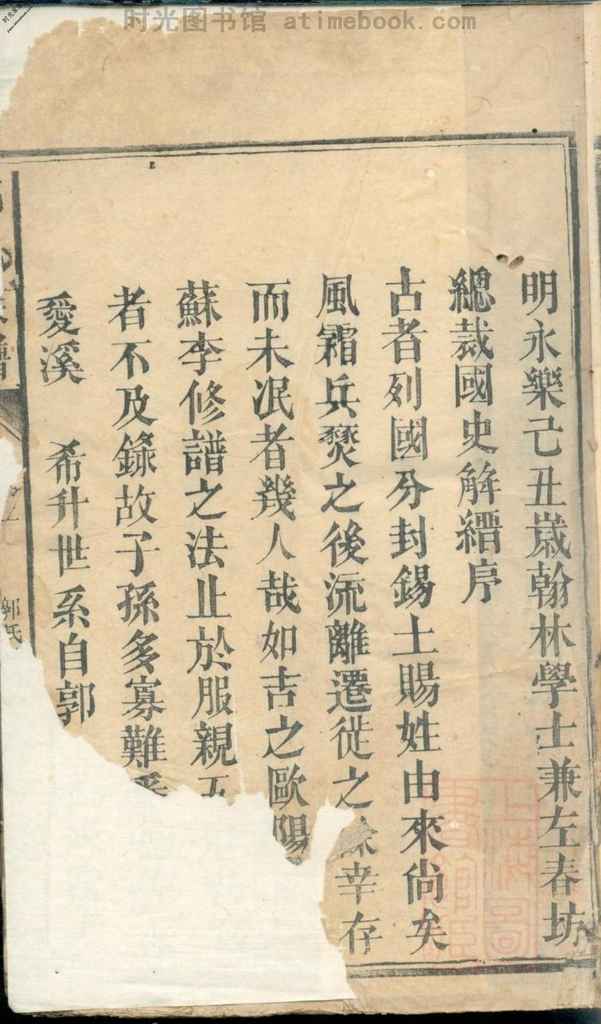 时光图书馆 atimebook.com
明永樂己丑歲翰林學士兼左春坊
總裁國史解縉序
古者列國分封錫土賜姓由來尚矣
風霜兵燹之後流離遷徙之餘幸存
而未泯者幾人哉如吉之歐陽
蘇李修譜之法止於服親五
者不及錄故子孫多寡難
愛溪 希升世系自郭
郭氏